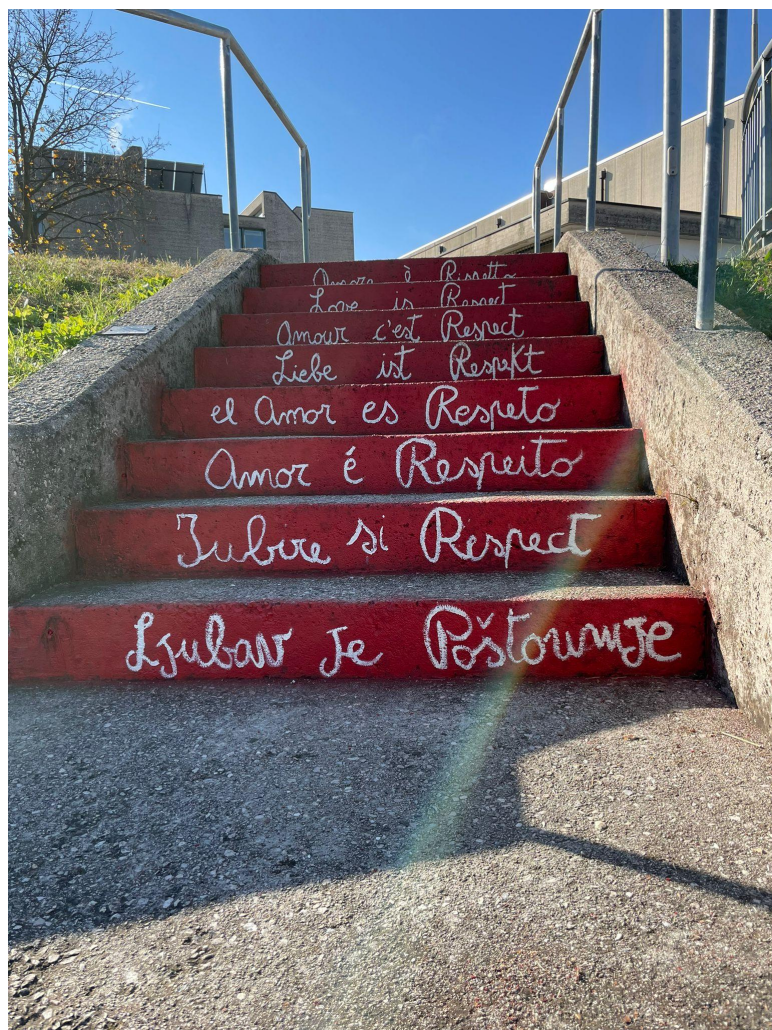 Amore è Rispetto
Love is Respect
Amour c'est Respect
Liebe ist Respekt
el Amor es Respeto
Amor é Respeito
Iubire si Respect
Ljubav je Poštovanje